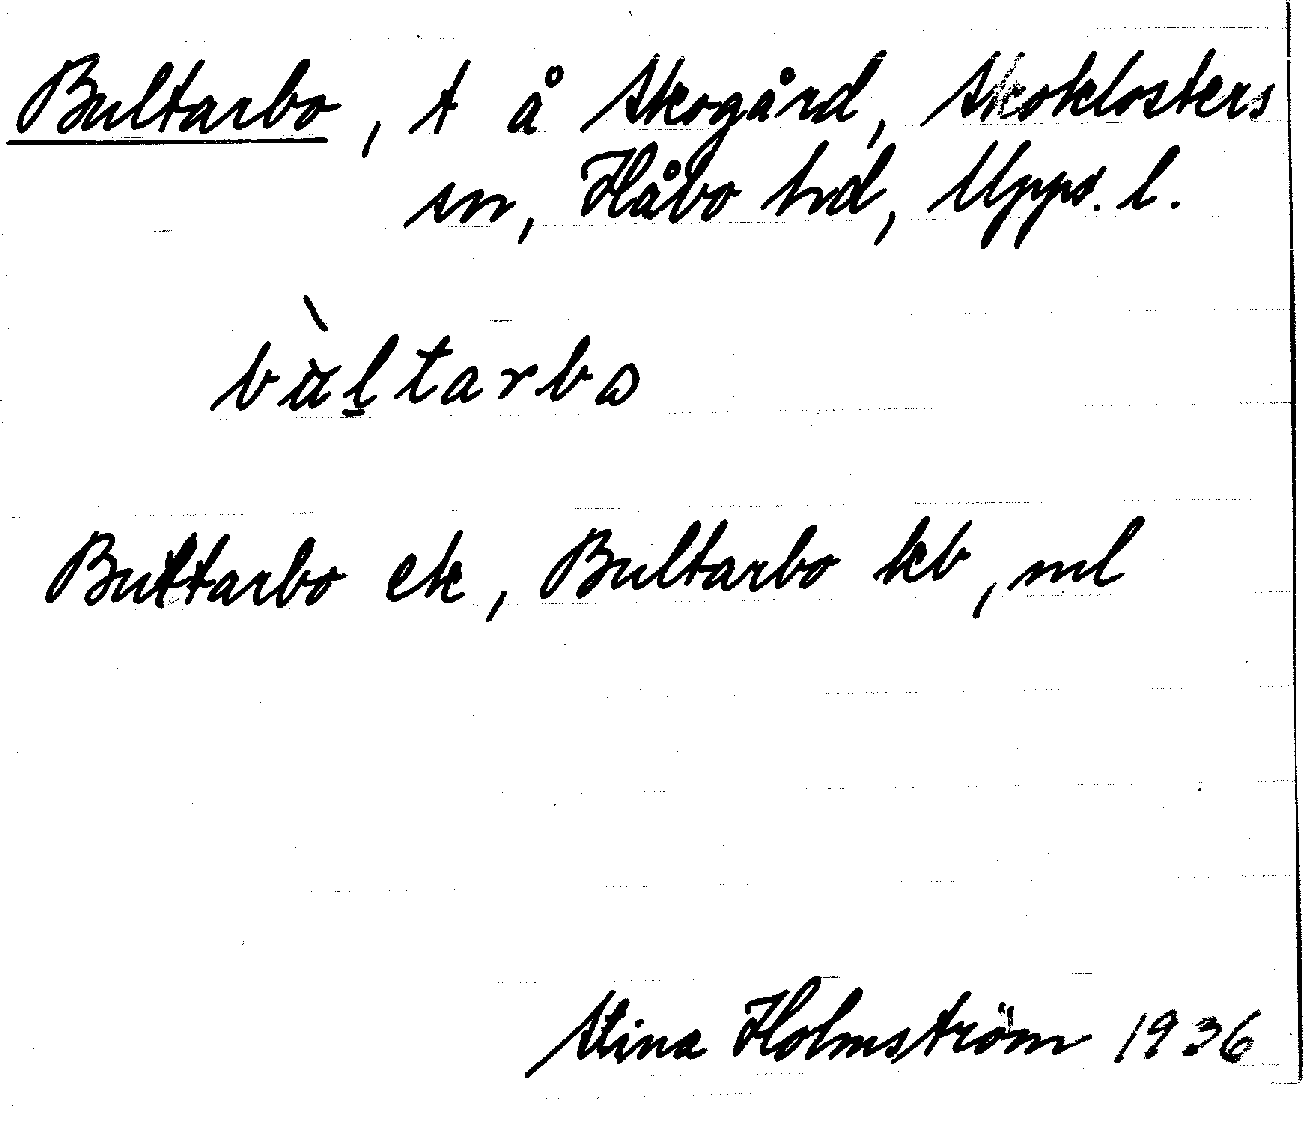 Bultarbo, t å Skogård, Skoklosters
sn, Håbo hd, Upps. l.
Bultarbo ek, Bultarbo kb, ml
Stina Holmström 1936